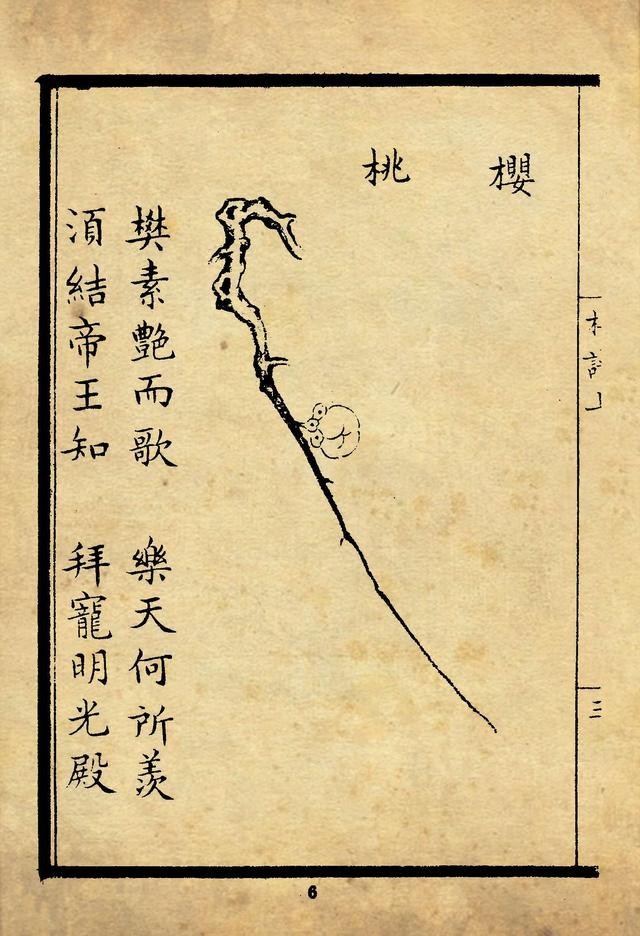 三
櫻桃
樊素艶而歌 樂天何所羨
湏結帝王知 拜寵明光殿
6